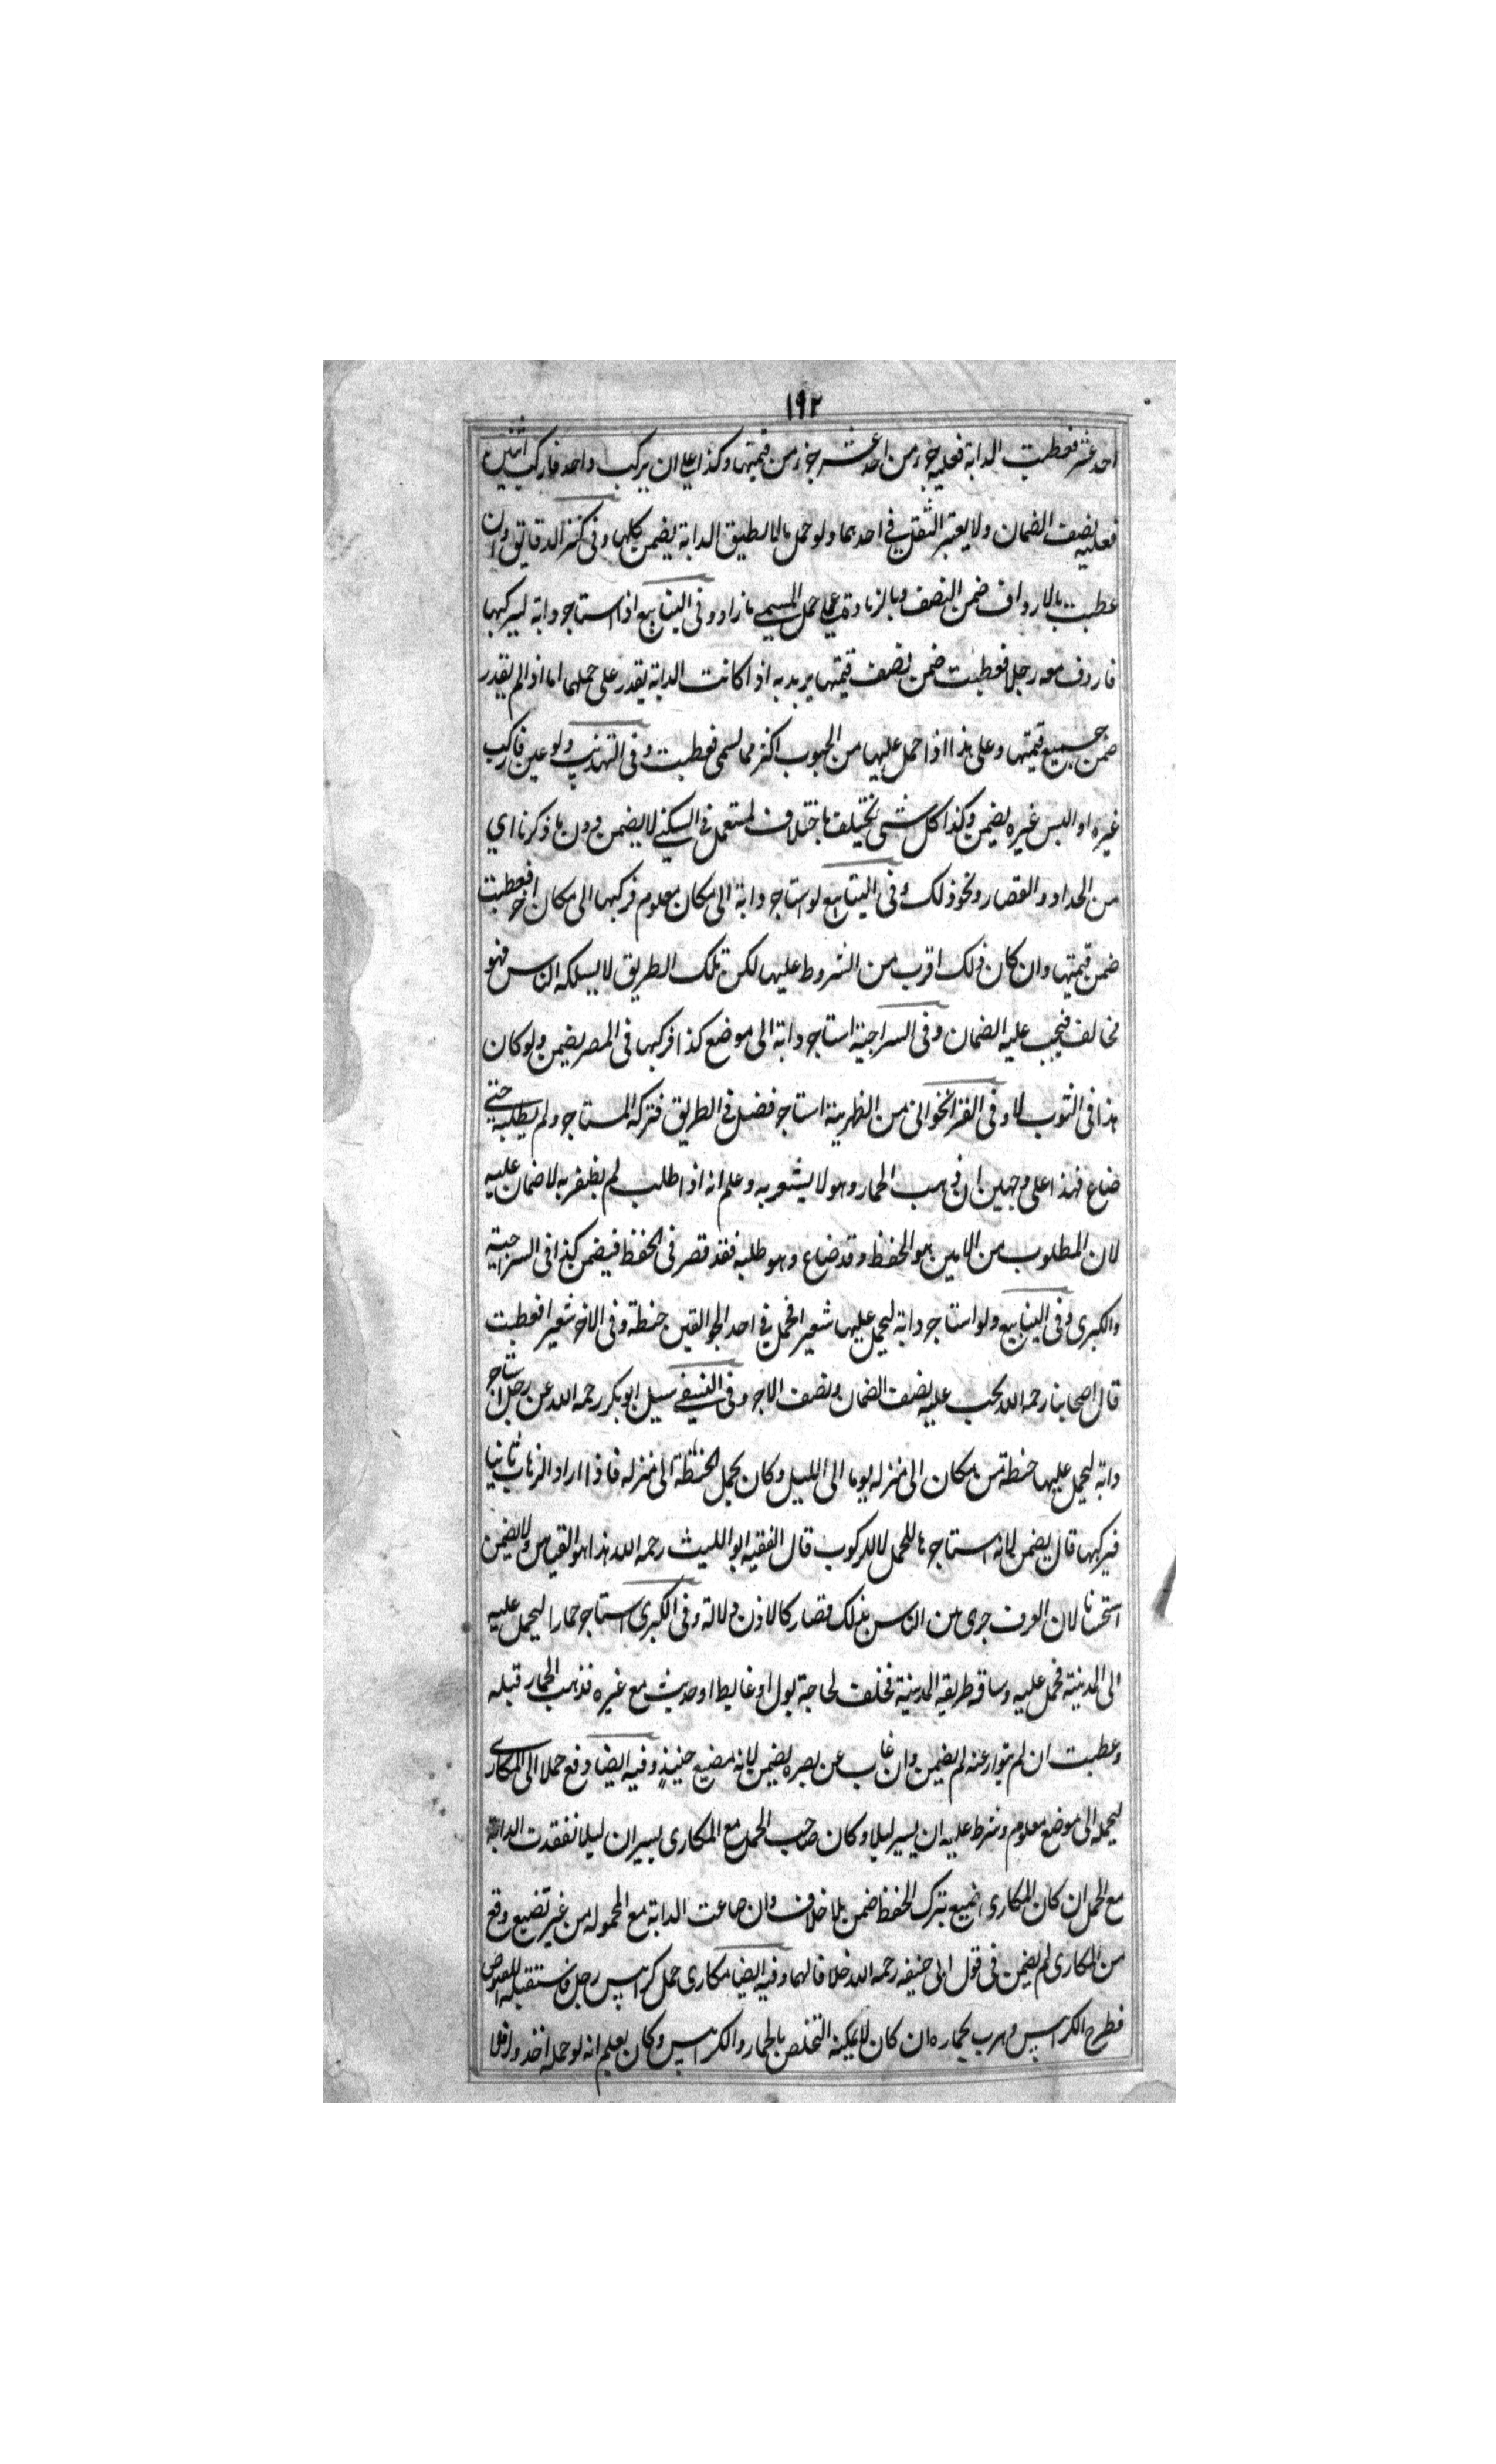 ١٩٢
احد عشر فعطبت الدابة فعليه جزء من احد عشر جزء من قيمتها وكذا على ان يركب واحد فاركب اثنين
فعليه نصف الضمان ولا يعتبر الثقل فى احدهما ولو حمل مالا يطيق الدابة يضمن كلها وفى كنز الدقائق وان
عطبت بالارداف ضمن النصف وبالزيادة على حمل المسمى ما زاد وفى الينابيع اذا استاجر دابة ليركبها
فاردف معه رجلا فعطبت ضمن نصف قيمتها يريد به اذا كانت الدابة يقدر على حملهما اما اذا لم يقدر
ضمن جميع قيمتها وعلى هذا اذا حمل عليها من الحبوب اكثر مما سمى فعطبت وفى التهذيب ولو عين فاركب
غيره او البس غيره يضمن وكذا كل شى يختلف باختلاف المستعمل فى السكنى لا يضمن دون ما ذكرنا اي
من الحداد والقصار ونحو ذلك وفى الينابيع لو استاجر دابة الى مكان معلوم فركبها الى مكان اخر فعطبت
ضمن قيمتها وان كان ذلك اقرب من الشروط عليها لكن تلك الطريق لا يسلكه الناس فهو
مخالف فيجب عليه الضمان وفى السراجية استاجر دابة الى موضع كذا فركبها فى المصر يضمن ولو كان
هذا فى الثوب لا وفى الفتزانخوانى من الظهرية استاجر فضل فى الطريق فتركه المستاجر ولم يطلبه حتى
ضاع فهذا على وجهين ان ذهب الحمار وهو لا يشعر به وعلم انه اذا طلب لم يظفر به لا ضمان عليه
لان المطلوب من الامين هو الحفظ وقد ضاع وهو طلبه فقد قصر فى الحفظ فيضمن كذا فى السراجية
والكبرى وفى الينابيع ولو استاجر دابة ليحمل عليها شعيرا فحمل فى احد الجوالقين حنطة وفى الاخر شعيرا فعطبت
قال اصحابنا رحمه الله يجب عليه نصف الضمان ونصف الاجر وفى النسفى سيل ابو بكر رحمه الله عن رجل استاجر
دابة ليحمل عليها حنطة من مكان الى منزله يوما الى الليل وكان يحمل الحنطة الى منزله فاذا اراد الذهاب ثانيا
فيركبها قال يضمن لانه استاجرها للحمل لا للركوب قال الفقيه ابو الليث رحمه الله هذا هو القياس ولا يضمن
استحسانا لان العرف جرى من الناس بذلك فصار كالاذن دلالة وفى الكبرى استاجر حمارا ليحمل عليه
الى المدينة فحمل عليه وساقه طريقه المدينة فخلف لحاجة بول او غايط او حديث مع غيره فذهب الحمار قبله
وعطبت ان لم يتوار عنه لم يضمن وان غاب عن بصره يضمن لانه مضيع حينيذ وفيه ايضا دفع حملا الى المكارى
ليحمله الى موضع معلوم وشرط عليه ان يسير ليلا وكان صاحب الحمل مع المكارى يسيران ليلا نفقدت الدابة
مع الحمل ان كان المكارى ضيع بترك الحفظ ضمن بلا خلاف وان ضاعت الدابة مع المحموله من غير تضيع وقع
من المكارى لم يضمن فى قول ابى حنيفه رحمه الله خلافا لهما وفيه ايضا مكارى حمل كرابيس رجل فاستقبله اللصوص
فطرح الكرابيس وهرب بحماره ان كان لا يمكنه التخلص بالحمار والكرابيس وكان يعلم انه لو حمله اخذ